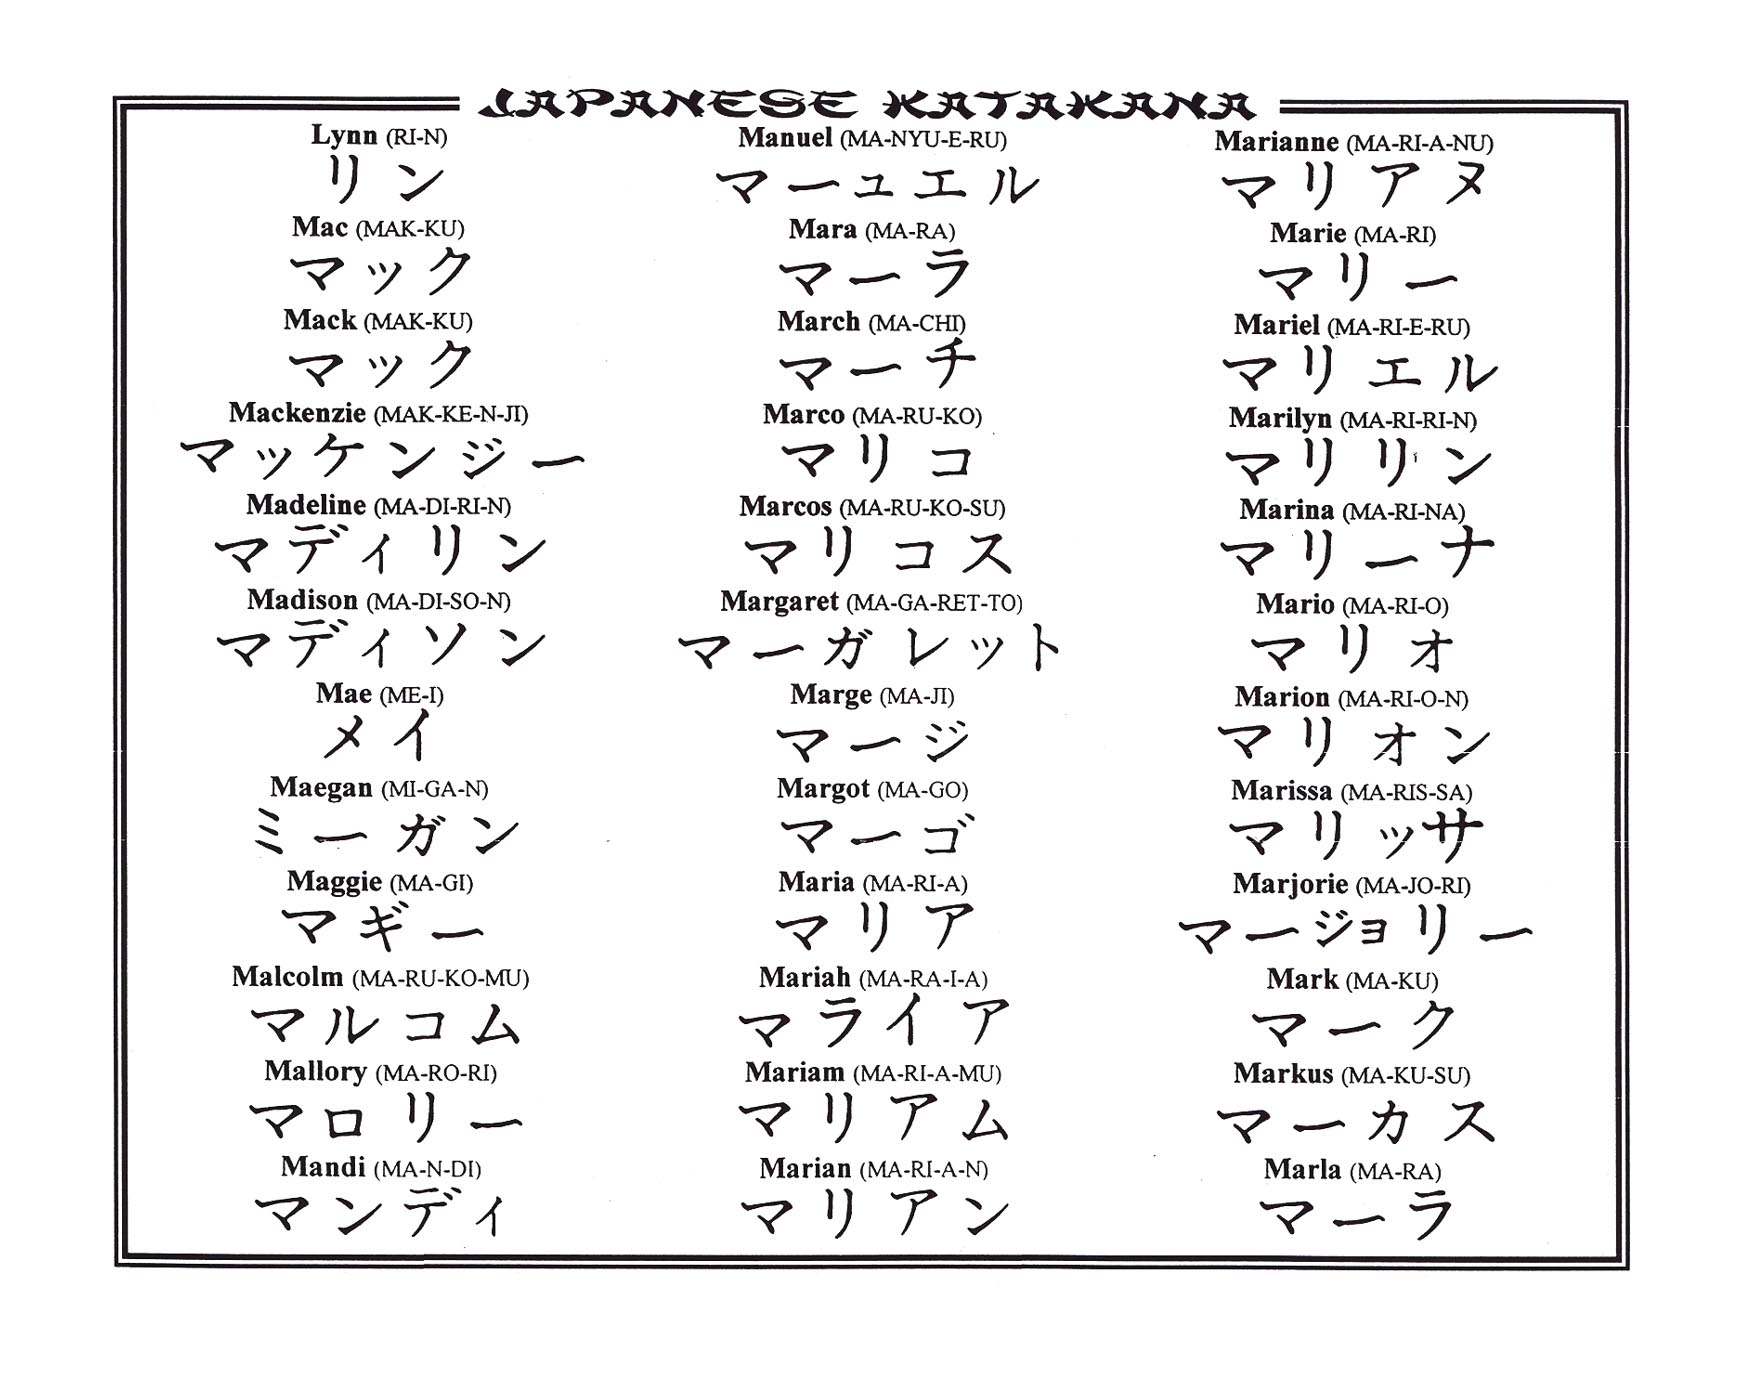 JAPANESE KATAKANA
Lynn (RI-N)
リン
Mac (MAK-KU)
マック
Mack (MAK-KU)
マック
Mackenzie (MAK-KE-N-JI)
マッケンジー
Madeline (MA-DI-RI-N)
マディリン
Madison (MA-DI-SO-N)
マディソン
Mae (ME-I)
メイ
Maegan (MI-GA-N)
ミーガン
Maggie (MA-GI)
マギー
Malcolm (MA-RU-KO-MU)
マルコム
Mallory (MA-RO-RI)
マロリー
Mandi (MA-N-DI)
マンディ
Manuel (MA-NYU-E-RU)
マーュエル
Mara (MA-RA)
マーラ
March (MA-CHI)
マーチ
Marco (MA-RU-KO)
マリコ
Marcos (MA-RU-KO-SU)
マリコス
Margaret (MA-GA-RET-TO)
マーガレット
Marge (MA-JI)
マージ
Margot (MA-GO)
マーゴ
Maria (MA-RI-A)
マリア
Mariah (MA-RA-I-A)
マライア
Mariam (MA-RI-A-MU)
マリアム
Marian (MA-RI-A-N)
マリアン
Marianne (MA-RI-A-NU)
マリアヌ
Marie (MA-RI)
マリー
Mariel (MA-RI-E-RU)
マリエル
Marilyn (MA-RI-RI-N)
マリリン
Marina (MA-RI-NA)
マリーナ
Mario (MA-RI-O)
マリオ
Marion (MA-RI-O-N)
マリオン
Marissa (MA-RIS-SA)
マリッサ
Marjorie (MA-JO-RI)
マージョリー
Mark (MA-KU)
マーク
Markus (MA-KU-SU)
マーカス
Marla (MA-RA)
マーラ